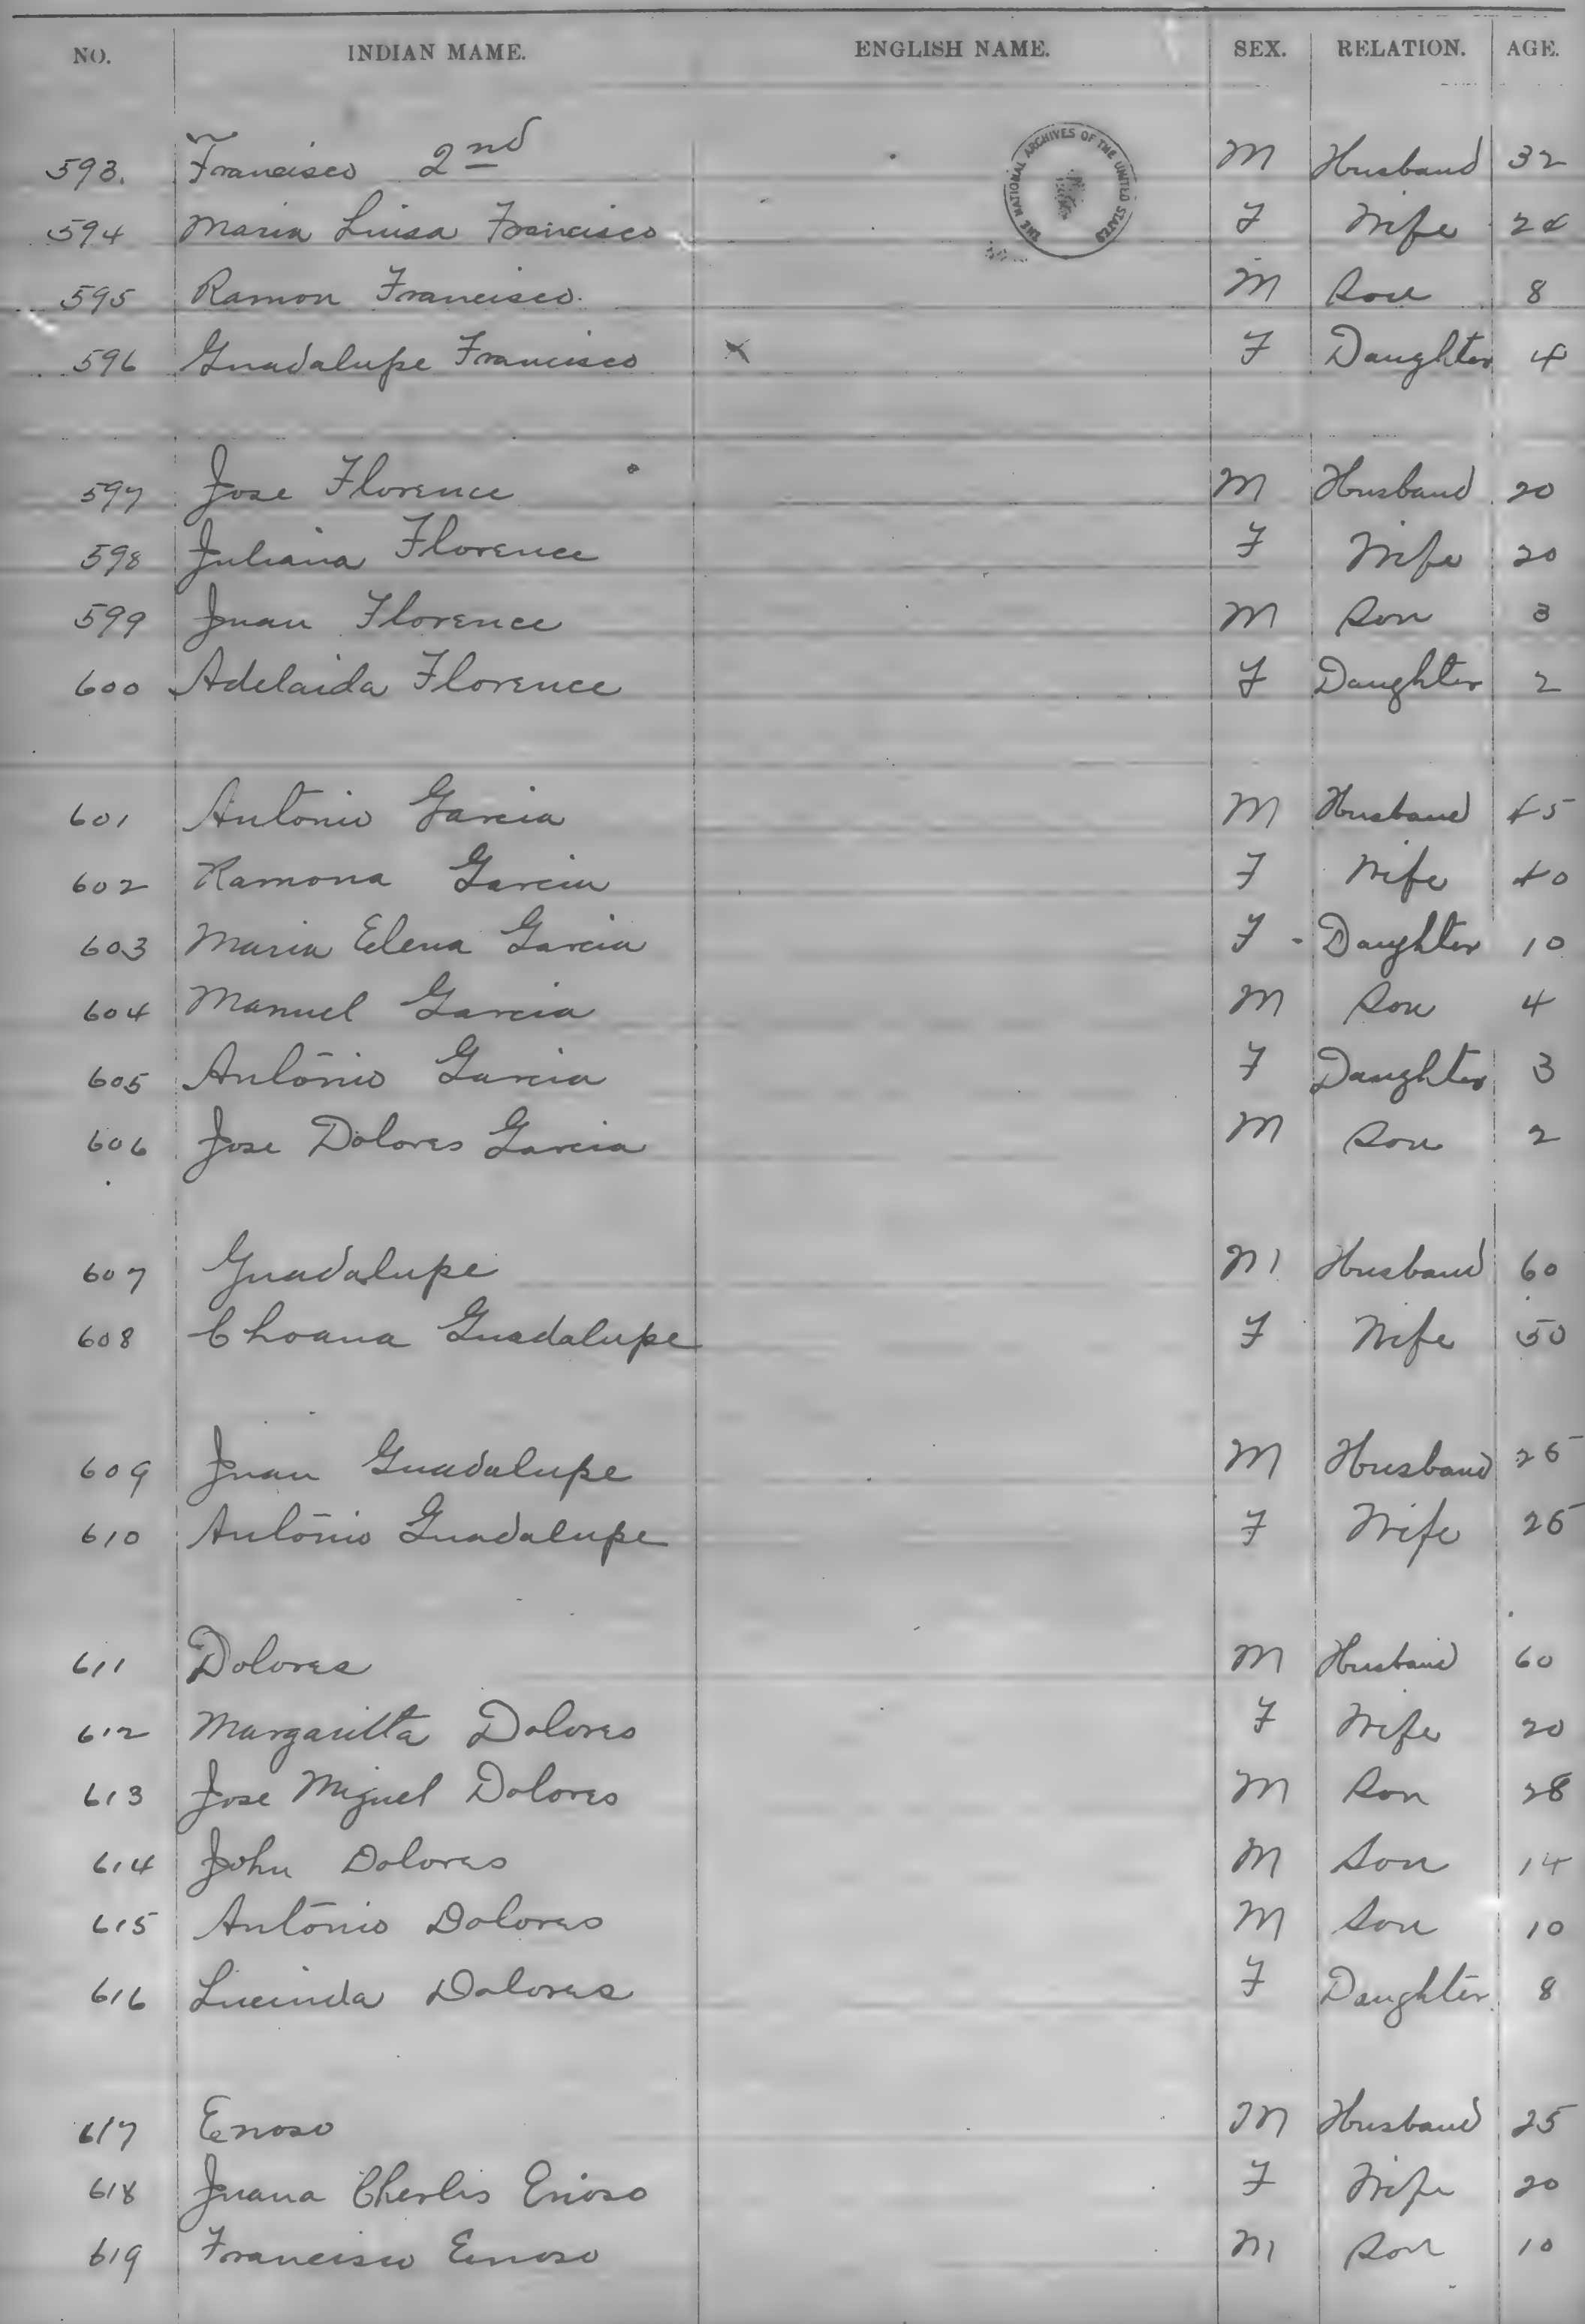 NO. INDIAN MAME. ENGLISH NAME. SEX. RELATION. AGE.
THE NATIONAL ARCHIVES OF THE UNITED STATES
593. Francisco 2nd M Husband 32
594 Maria Luisa Francisco F Wife 24
595 Ramon Francisco. M Son 8
596 Guadalupe Francisco x F Daughter 4
597 Jose Florence M Husband 20
598 Juliana Florence F Wife 20
599 Juan Florence M Son 3
600 Adelaida Florence F Daughter 2
601 Antonio Garcia M Husband 45
602 Ramona Garcia F Wife 40
603 Maria Elena Garcia F Daughter 10
604 Manuel Garcia M Son 4
605 Antonio Garcia F Daughter 3
606 Jose Dolores Garcia M Son 2
607 Guadalupe M Husband 60
608 Choana Guadalupe F Wife 50
609 Juan Guadalupe M Husband 25
610 Antonio Guadalupe F Wife 25
611 Dolores M Husband 60
612 Margaritta Dolores F Wife 20
613 Jose Miguel Dolores M Son 28
614 John Dolores M Son 14
615 Antonio Dolores M Son 10
616 Lucinda Dolores F Daughter 8
617 Enoso M Husband 25
618 Juana Cherlis Enoso F Wife 20
619 Francisco Enoso M Son 10